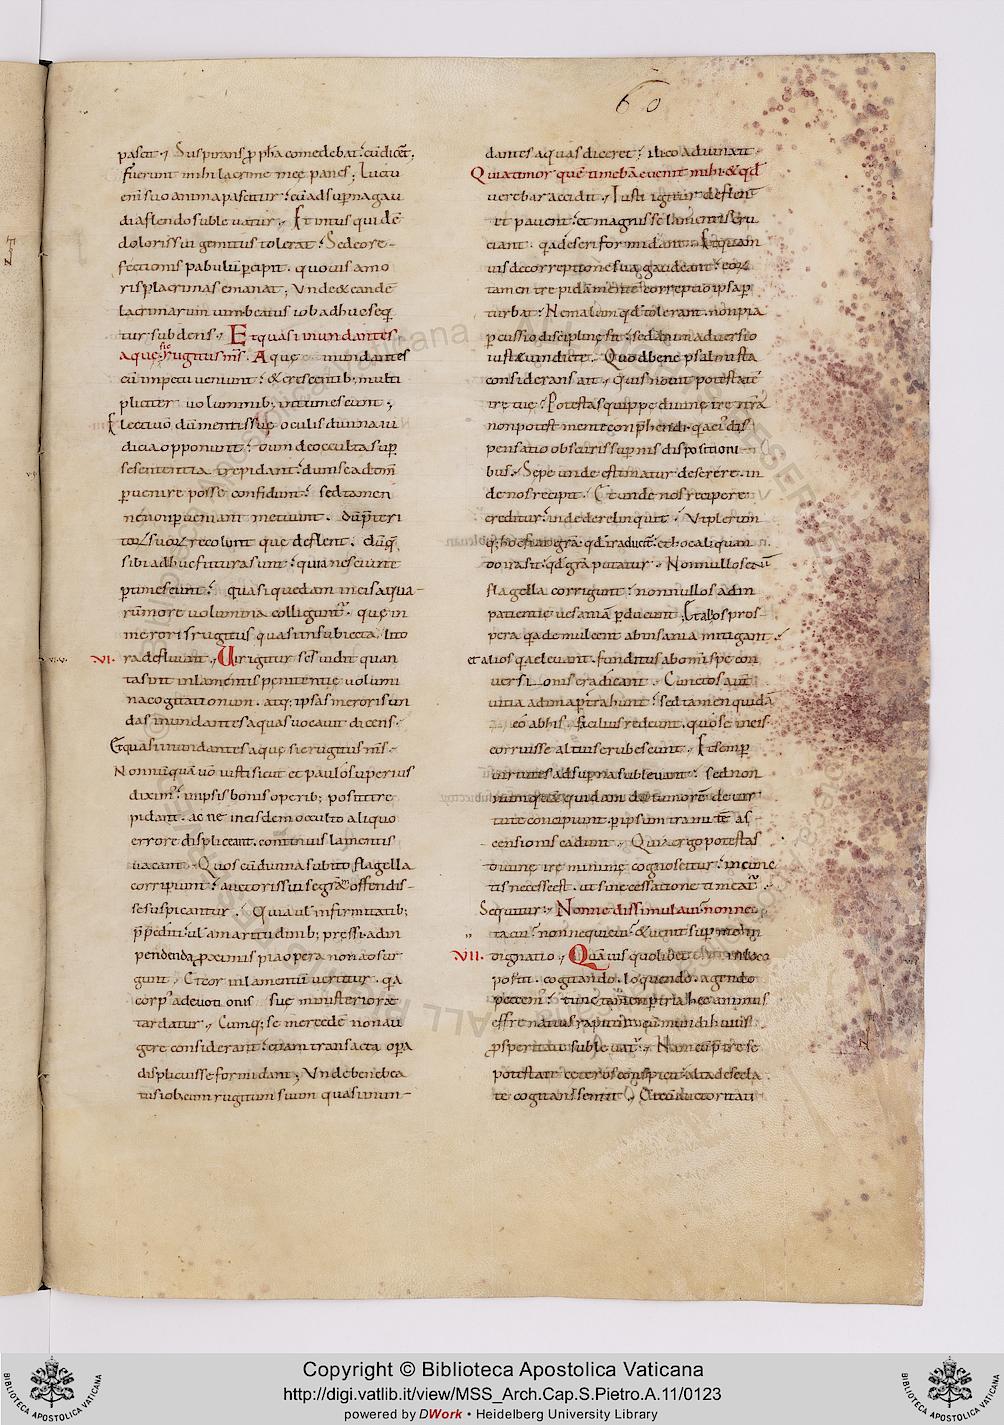 60
pascit. Suspirans ꝓpħa comedebat. cū dicēt.
fuerunt mihi lacrime meę panes; Luctu
enī suo anima pascitur. cū ad suꝑna gau
dia flendo sublevatur. Et intus quidē
doloris sui gemitus tolerat. Sed eo re-
fectionis pabulū ꝑcipit. quo vis amo
ris ꝑ lacrimas emanat; Unde & eandē
lacrimarum vim beatus iob adhuc seq̄
tur subdens. Et quasi inundantes
aquę. sic rugitus mś. Aquę inundantes
cū impetu veniunt. & crescentib; multi
pliciter voluminib; intumescunt;
Electi vō dū mentis suę oculis divina iu
dicia opponunt. dum de occulta suꝑ
se sententia trepidant. dum se ad dm̄
ꝑvenire posse confidunt. sed tamen
ne non ꝑveniant metuunt. dū p̄teri
toꝝ suoꝝ recolunt que deflent. dū q̄
sibi adhuc futura sunt. quia nesciunt
ꝑtimescunt. quasi quedam in eis aqua-
rū more volumina colligunt̄. que in
meroris rugitus quasi in subiecta lito
VI. ra defluunt. Vir igitur ses̄ vidit quan
ta sint in lamentis penitentię volumi
na cogitationum. atq; ipsas meroris un
das inundantes aquas vocavit dicens.
Et quasi inundantes aquę sic rugitus mś.
Nonnūquā vō iusti sicut et paulo superius
diximꝰ. in ipsis bonis operib; positi tre
pidant. ac ne in eisdem occulto aliquo
errore displiceant. continuis lamentis
vacant. Quos cū divina subito flagella
corripiunt. auctoris sui se grā offendis-
se suspicantur. Quia ul infirmitatib;
p̄pediti. ul amaritudinib; pressi. ad in
pendenda ꝓximis pia opera non adsur
gunt. Et eor in lamentū vertitur. q̄a
corpꝰ a devotionis suę ministerio re
tardatur. Cumq; se mercedē non au
gere considerant. etiam transacta oꝑa
displicuisse formidant; Unde bene bea
tus iob eum rugitum suum quasi inun-
dantes aquas diceret. ilico adiunxit.
Quia timor quē timebā evenit mihi. & qđ
verebar accidit. Iusti igitur deflent
et pavent. et magnis se lamentis cru
ciant. q̄a deseri formidant. Et quam
vis de correptione sua gaudeant. eoꝝ
tamen trepidā mentē correptio ipsa ꝑ
turbat. Ne malum qđ tolerant. non pia
ꝑcussio disciplinę sit. sed animadversio
iusta vindictę. Quod bene psalmista
considerans ait. Quis novit potestatē
irę tuę. Potestas quippe divinę irę nr̄a
non potest mente conp̄hendi. q̄a eiꝰ dis
pensatio obscuris suꝑ nis dispositioni-
bus. Sepe unde estimatur deserere. in
de nos recipit. Et unde nos recipere
creditur. inde derelinquit. Ut plerum
q; hoc fiat gr̄a. qđ ira dicitur. et hoc aliquan
do ira sit. qđ gr̄a putatur. Nonnullos etenī
flagella corrigunt. nonnullos ad in
patientię vesaniā ꝑducunt. Et alios pros-
pera q̄a demulcent ab insania mitigant.
et alios q̄a elevant. funditus ab omī spe con
versionis eradicant. Cunctos autē
vitia ad ima ꝑtrahunt. sed tamen quidā
eo ab his facilius redeunt. quo se in eis
corruisse altius erubescunt. Et semꝑ
virtutes ad suꝑna sublevant. sed non
numquā quidam dū tumorē de vir
tute concipiunt. ꝑ ipsum tramitē as-
censionis cadunt. Quia ergo potestas
divinę irę minime cognoscitur. in cunc
tis necesse est. ut sine cessatione timeatur.
Sequitur. Nonne dissimulavi. nonne
tacui. nonne quievi. & venit suꝑ me in
VII. dignatio. Quāvis quolibet in loco
positi. cogitando. loquendo. agendo
peccemꝰ. tunc tamen ꝑ tria hec animus
effrenatus rapitur. cū mundi huius
ꝓsperitate sublevatur. Nam cū p̄ire se
potestate ceteros conspicit. alta de se ela
te cogitans sentit. Et cū auctoritati
Copyright © Biblioteca Apostolica Vaticana
http://digi.vatlib.it/view/MSS_Arch.Cap.S.Pietro.A.11/0123
powered by DWork • Heidelberg University Library
BIBLIOTECA APOSTOLICA VATICANA
BIBLIOTECA APOSTOLICA VATICANA